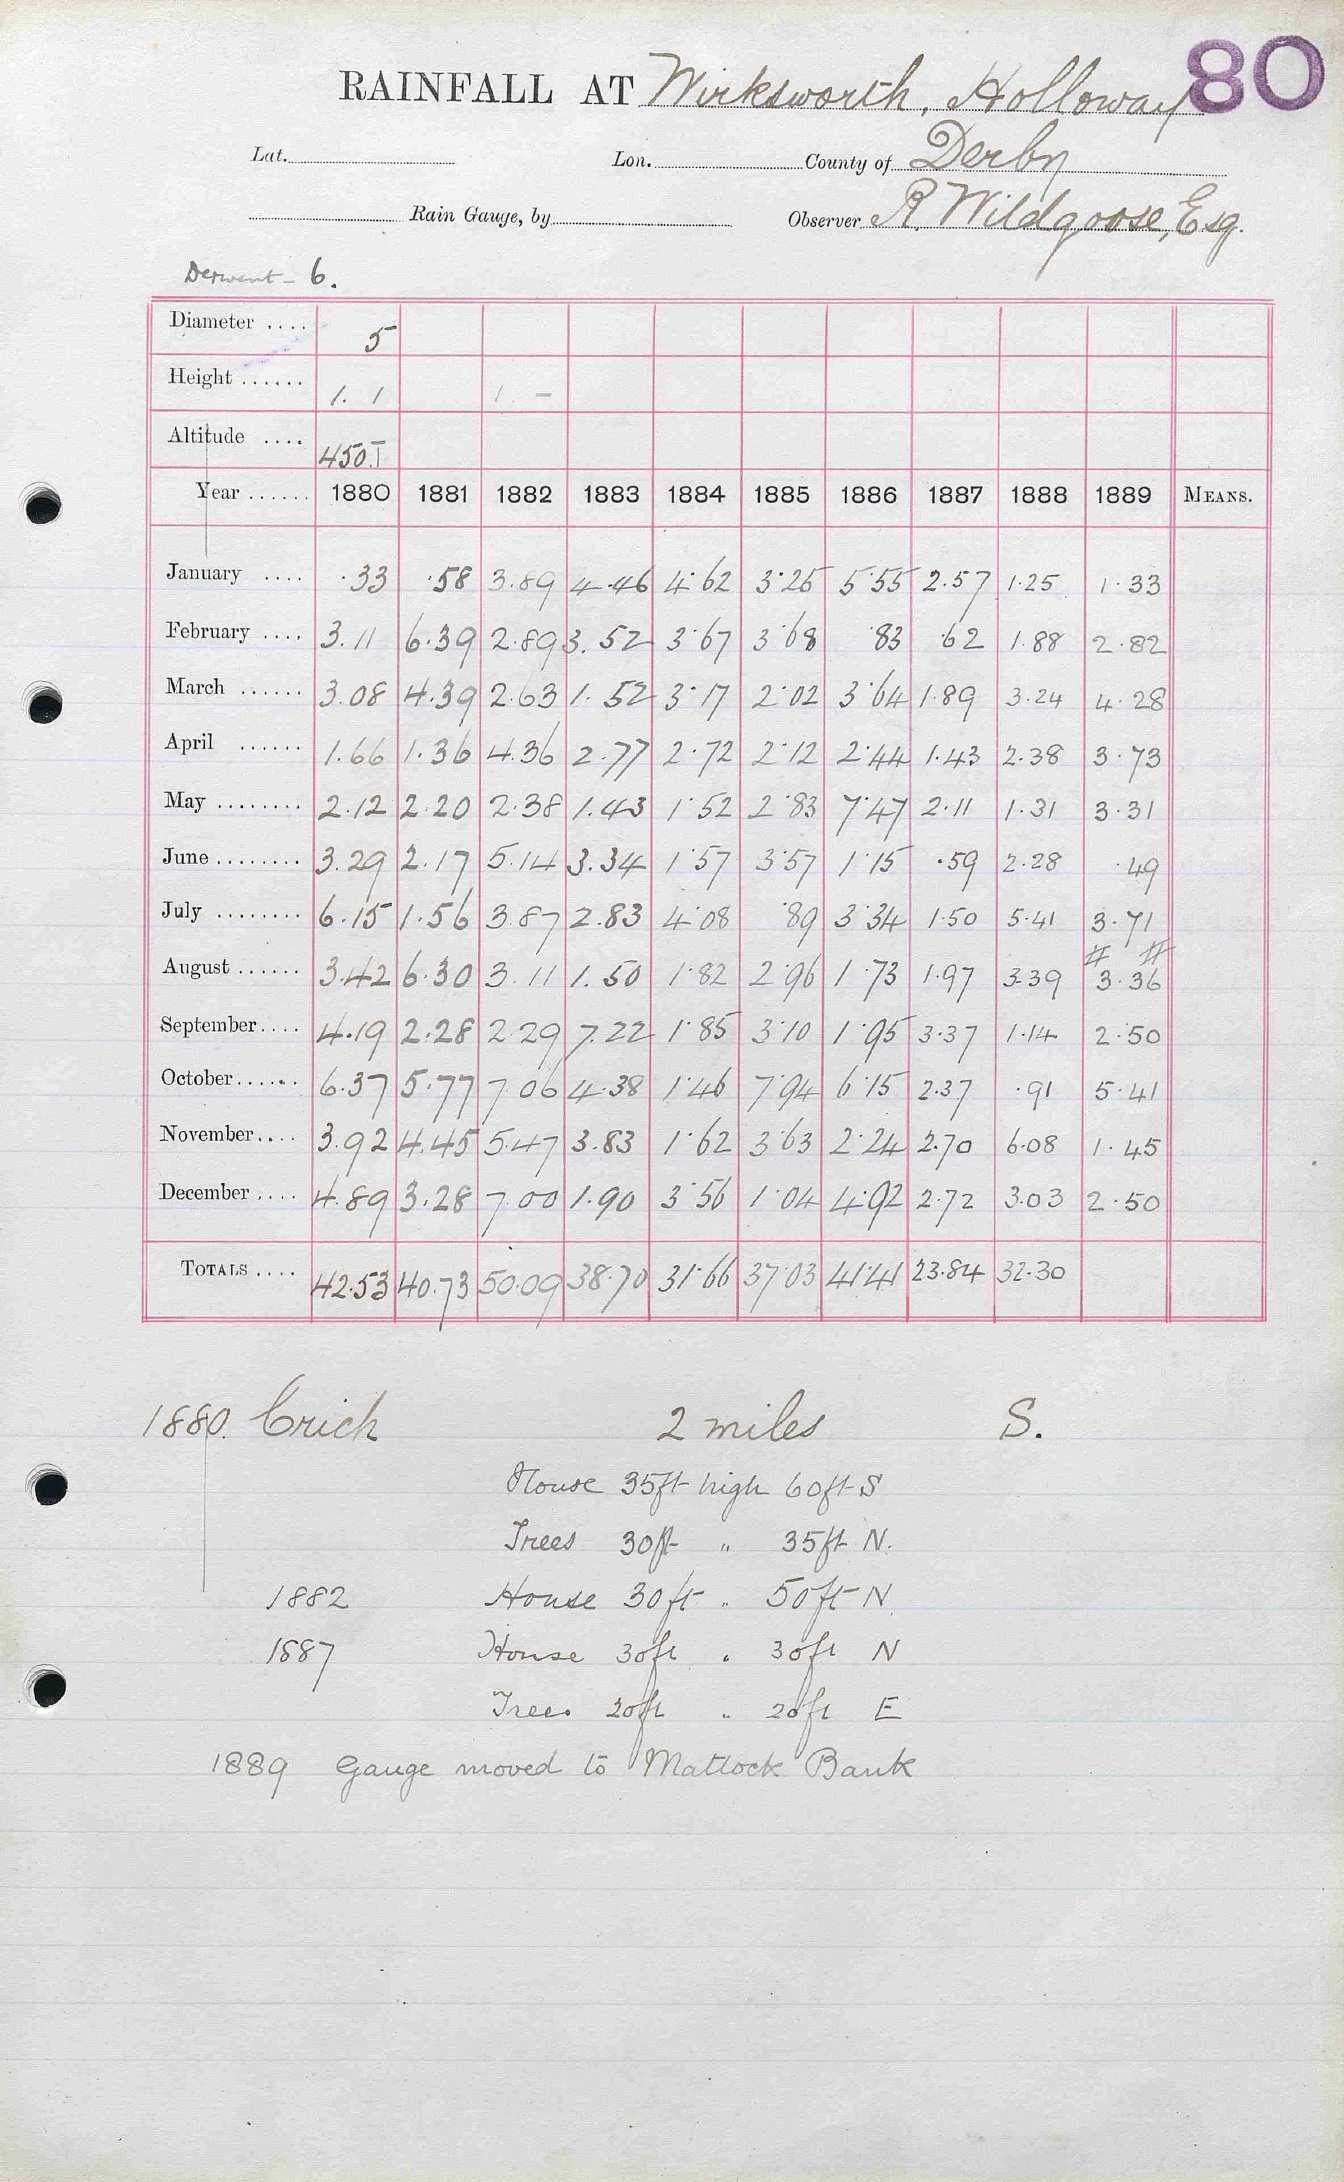 80
RAINFALL AT Wirksworth, Holloway
Lat. Lon. County of Derby
Rain Gauge, by Observer R. Wildgoose, Esq.
Derwent - 6.
Diameter .... 5
Height ...... 1. 1 1 -
Altitude .... 450.T
Year ...... 1880 1881 1882 1883 1884 1885 1886 1887 1888 1889 MEANS.
January .... .33 .58 3.89 4.46 4.62 3.25 5.55 2.57 1.25 1.33
February .... 3.11 6.39 2.89 3.52 3.67 3.68 .83 .62 1.88 2.82
March ...... 3.08 4.39 2.63 1.52 3.17 2.02 3.64 1.89 3.24 4.28
April ...... 1.66 1.36 4.36 2.77 2.72 2.12 2.44 1.43 2.38 3.73
May ........ 2.12 2.20 2.38 1.43 1.52 2.83 7.47 2.11 1.31 3.31
June ........ 3.29 2.17 5.14 3.34 1.57 3.57 1.15 .59 2.28 .49
July ........ 6.15 1.56 3.87 2.83 4.08 .89 3.34 1.50 5.41 3.71
# #
August ...... 3.42 6.30 3.11 1.50 1.82 2.96 1.73 1.97 3.39 3.36
September.... 4.19 2.28 2.29 7.22 1.85 3.10 1.95 3.37 1.14 2.50
October...... 6.37 5.77 7.06 4.38 1.46 7.94 6.15 2.37 .91 5.41
November.... 3.92 4.45 5.47 3.83 1.62 3.63 2.24 2.70 6.08 1.45
December .... 4.89 3.28 7.00 1.90 3.56 1.04 4.92 2.72 3.03 2.50
TOTALS .... 42.53 40.73 50.09 38.70 31.66 37.03 41.41 23.84 32.30
1880. Crich 2 miles S.
House 35ft high 60ft S
Trees 30ft " 35ft N.
1882 House 30ft " 50ft N.
1887 House 30ft " 30ft N
Trees 20ft " 20ft E
1889 Gauge moved to Matlock Bank